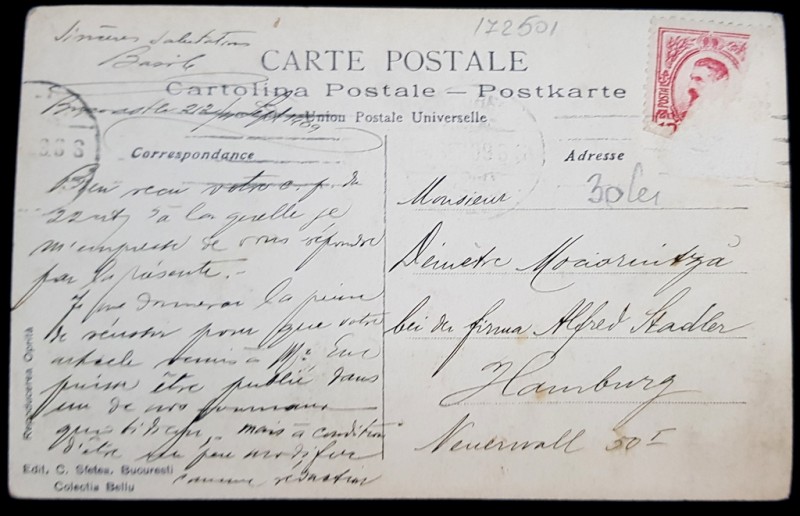 172501
Sincères salutations
Basile
CARTE POSTALE
Cartolina Postale — Postkarte
Union Postale Universelle
Correspondance
Adresse
30 lei
Bien reçu votre c. p. du
22 ct, à la quelle je
m'empresse de vous répondre
par la présente.-
Je me donnerai la peine
de réussir pour que votre
article remis à Mr.
puisse être publié dans
un de nos journaux
quotidiens, mais à condition
d'être un peu modifié
comme rédaction
Monsieur
Démètre Mociornitza
bei der firma Alfred Stadler
Hamburg
Neuerwall 50 I
Reproducerea Oprită
Edit. C. Sfetea, Bucuresti
Colectia Bellu